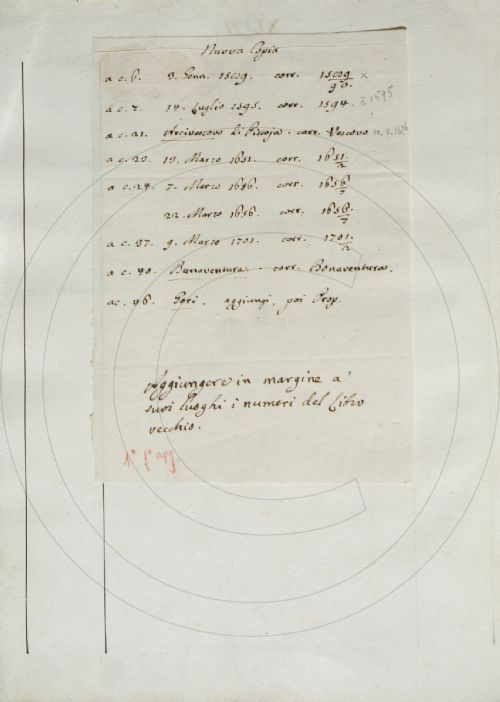 Nuova Copia
a c. 6. 3. Genn. 1509. corr. 1509/90. ×
a c. 7. 14. Luglio 1595. corr. 1594. 1595
a c. 21. Arcivescovo di Pistoja. corr. Vescovo
a c. 23. 13. Marzo 1651. corr. 1651/2
a c. 24. 7. Marzo 1656. corr. 1656/7
22. Marzo 1656. corr. 1656/7
a c. 37. 9. Marzo 1701. corr. 1701/2
a c. 40. Bunaventura. corr. Bonaventura.
a c. 46. Gori. aggiungi, poi Prop.
Aggiungere in margine a'
suoi luoghi i numeri del Libro
vecchio.